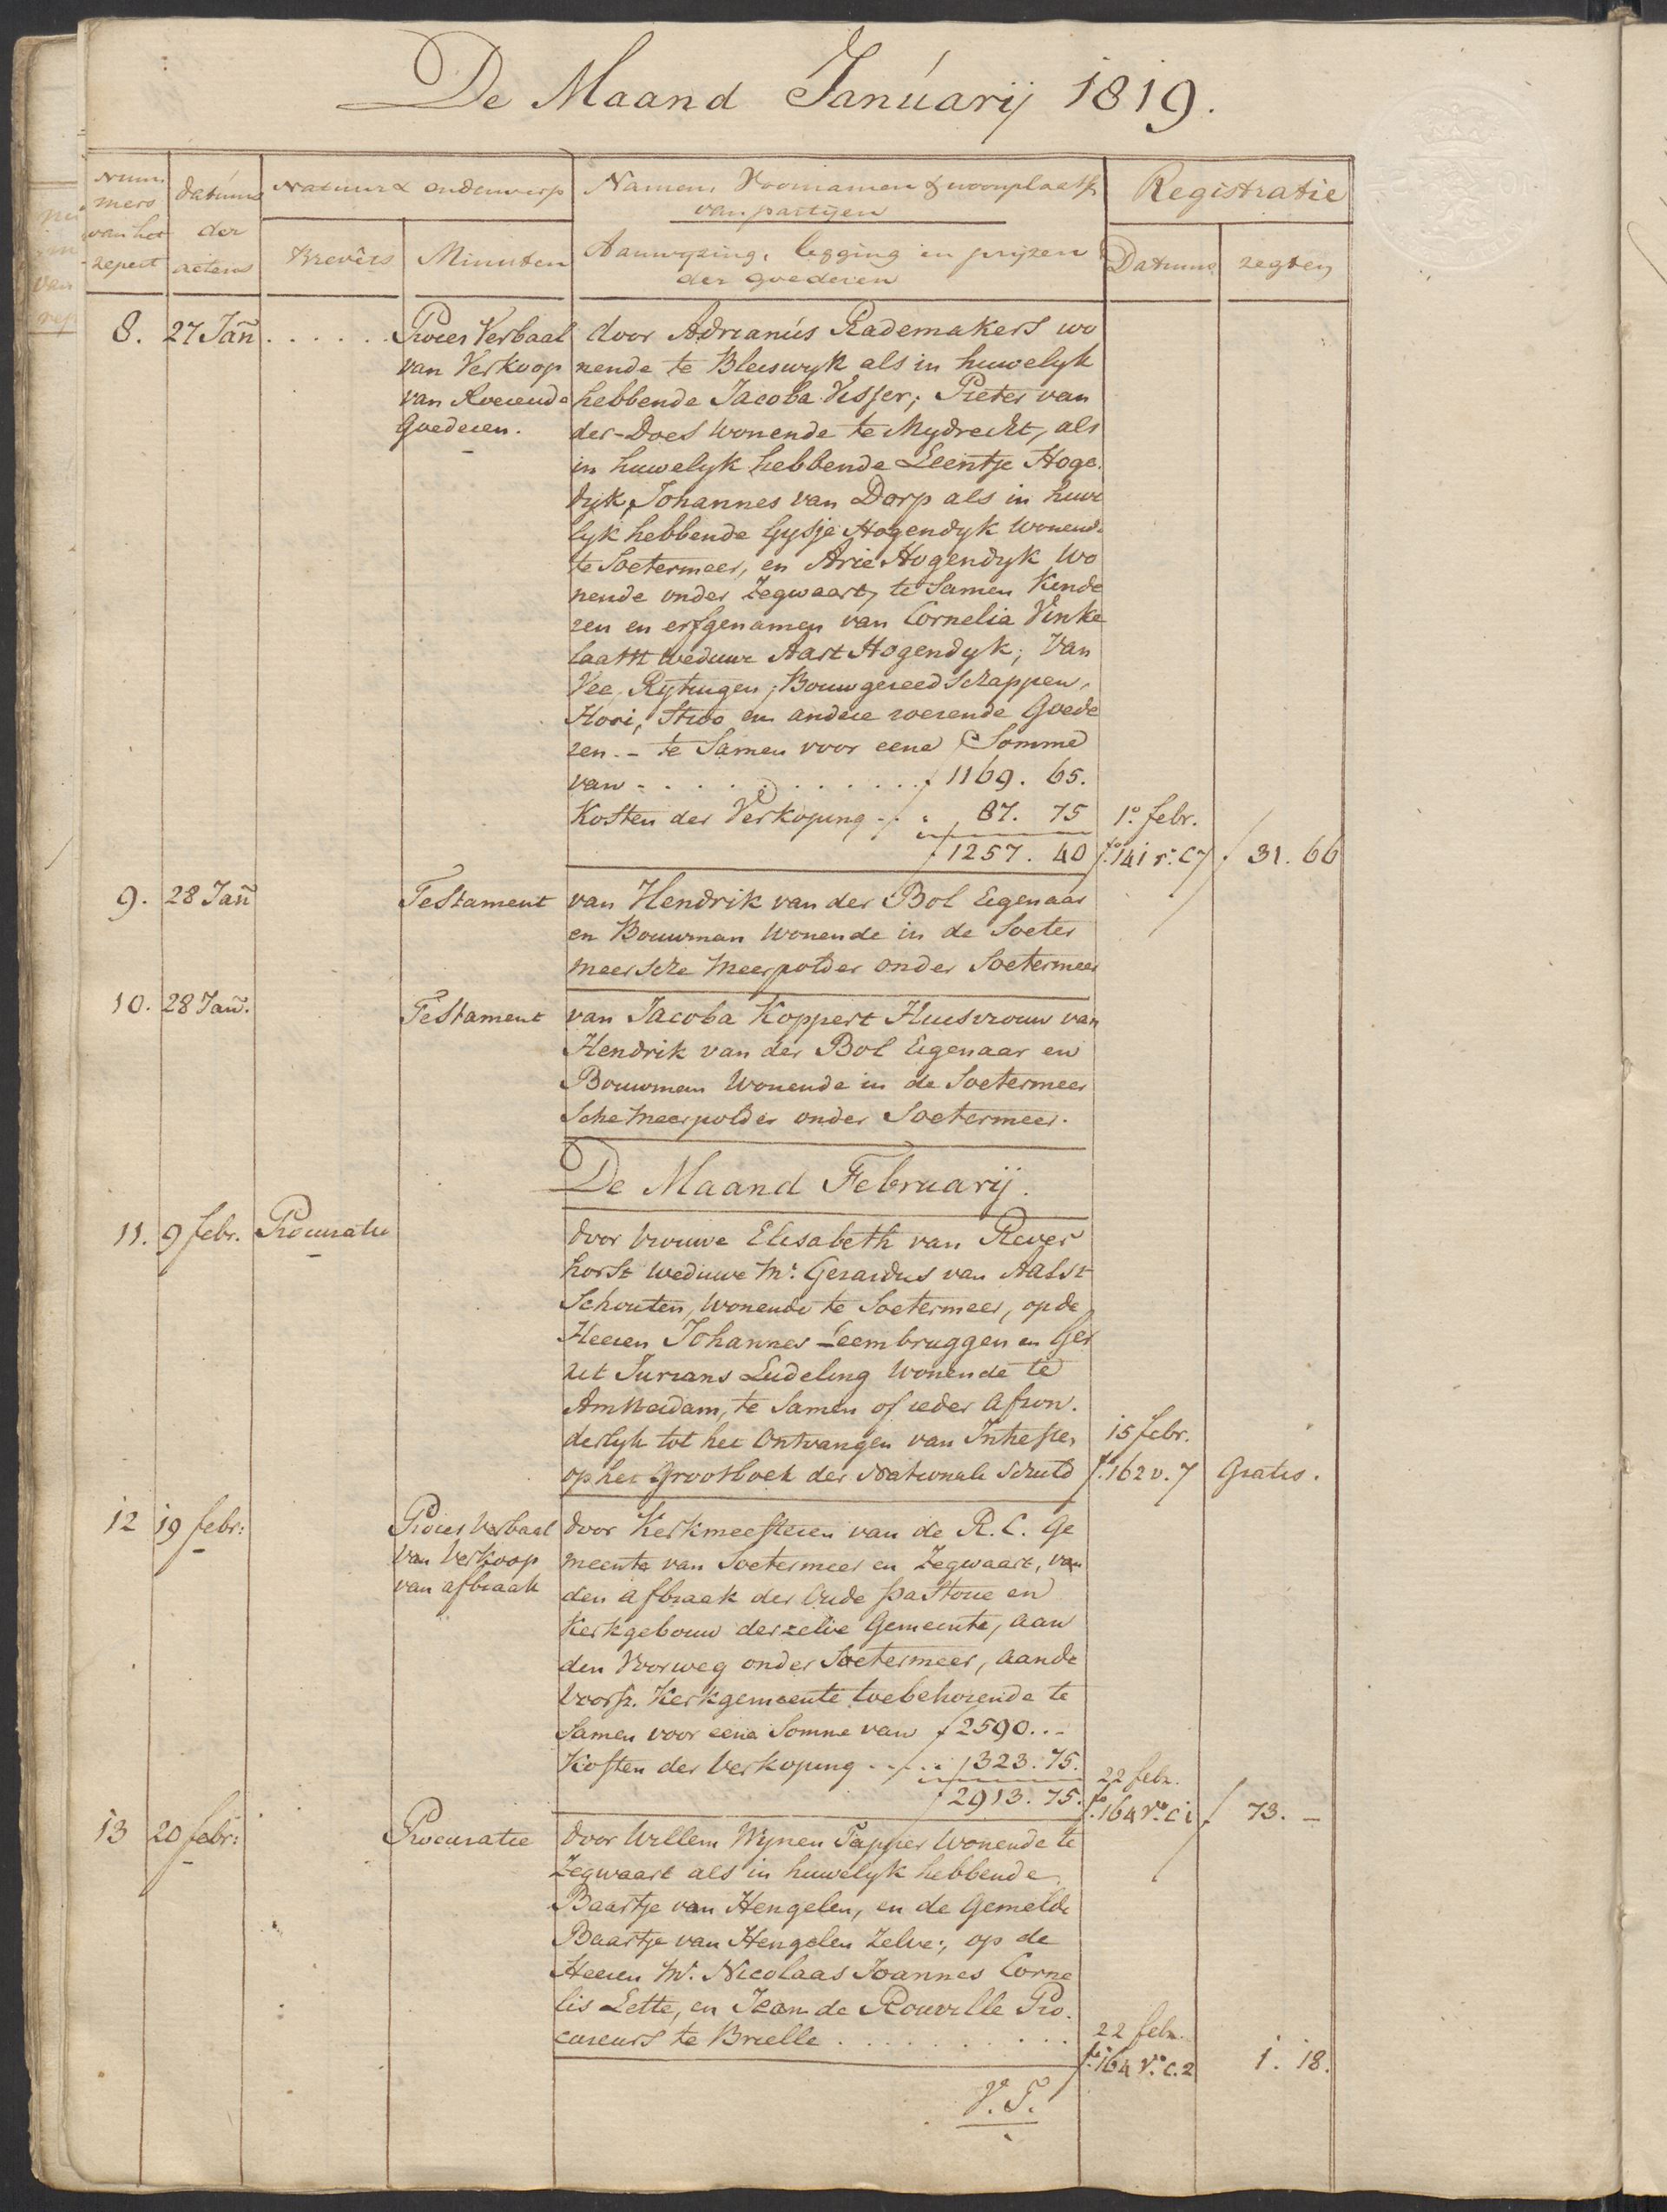 De Maand Januarij 1819.
Num
mers
van het
repert
datums
der
actens
Natuur & onderwerp
Brevêts
Minuten
Namen, Voornamen & woonplaats
van partijen
Aanwyzing, legging en prijzen
der goederen
Registratie
Datums
regten
8. 27 Jan̄ . . . . . . Proces Verbaal door Adrianus Rademakers wo
van Verkoop nende te Bleiswyk als in huwelyk
van Roerende hebbende Jacoba Visser; Pieter van
Goederen. der-Does wonende te Mydrecht, als
in huwelyk hebbende Leentje Hoge
dyk, Johannes van Dorp als in huwe
lyk hebbende Gysje Hogendyk wonende
te Soetermeer, en Arie Hogendyk wo
nende onder Zegwaart, te Samen Kinde
ren en erfgenamen van Cornelia Vinke
laatst weduwe Aart Hogendyk; Van
Vee, Rytuigen, Bouwgereedschappen,
Hooi, Stroo en andere roerende Goede
ren. - te Samen voor eene Somme
van . . . . . . . . . . . ƒ 1169. 65.
Kosten der Verkoping - - " 87. 75 1º. febr.
ƒ 1257. 40 fº. 141 rº. C 7 ƒ 31. 66
9. 28 Jan̄ Testament van Hendrik van der Bol Eigenaar
en Bouwman wonende in de Soeter
meersche Meerpolder onder Soetermeer
10. 28 Jan̄. Testament van Jacoba Koppert Huisvrouw van
Hendrik van der Bol Eigenaar en
Bouwman wonende in de Soetermeer
sche Meerpolder onder Soetermeer.
De Maand Februarij.
11. 9 febr. Procuratie door vrouwe Elisabeth van Rever
horst weduwe Mr. Gerardus van Aalst
Schouten, wonende te Soetermeer, op de
Heeren Johannes Leembruggen en Ger
rit Jurians Ludeling wonende te
Amsterdam, te Samen of ieder afson-
derlyk tot het Ontvangen van Intressen 15 febr.
op het Grootboek der Nationale Schuld fº. 162 v. 7 Gratis.
12 19 febr: Proces Verbaal door Kerkmeesteren van de R. C. Ge
van Verkoop meente van Soetermeer en Zegwaart, van
van afbraak den afbraak der Oude pastorie en
Kerkgebouw derzelve Gemeente, aan
den Voorweg onder Soetermeer, aan de
voorsz. Kerkgemeente toebehorende te
Samen voor eene Somme van ƒ 2590. . -
Kosten der Verkoping - - - " 323. 75. 22 febr.
ƒ 2913. 75. fº. 164 vº. C 1 ƒ 73. -
13 20 febr: Procuratie door Willem Wynen Tapper wonende te
Zegwaart als in huwelyk hebbende
Baartje van Hengelen, en de Gemelde
Baartje van Hengelen Zelve:, op de
Heeren Mr. Nicolaas Joannes Corne
lis Lette, en Jean de Rouville Pro-
cureurs te Brielle . . . . . . . . . . 22 febr.
fº. 164 Vº. C. 2 1. 18.
V. T.